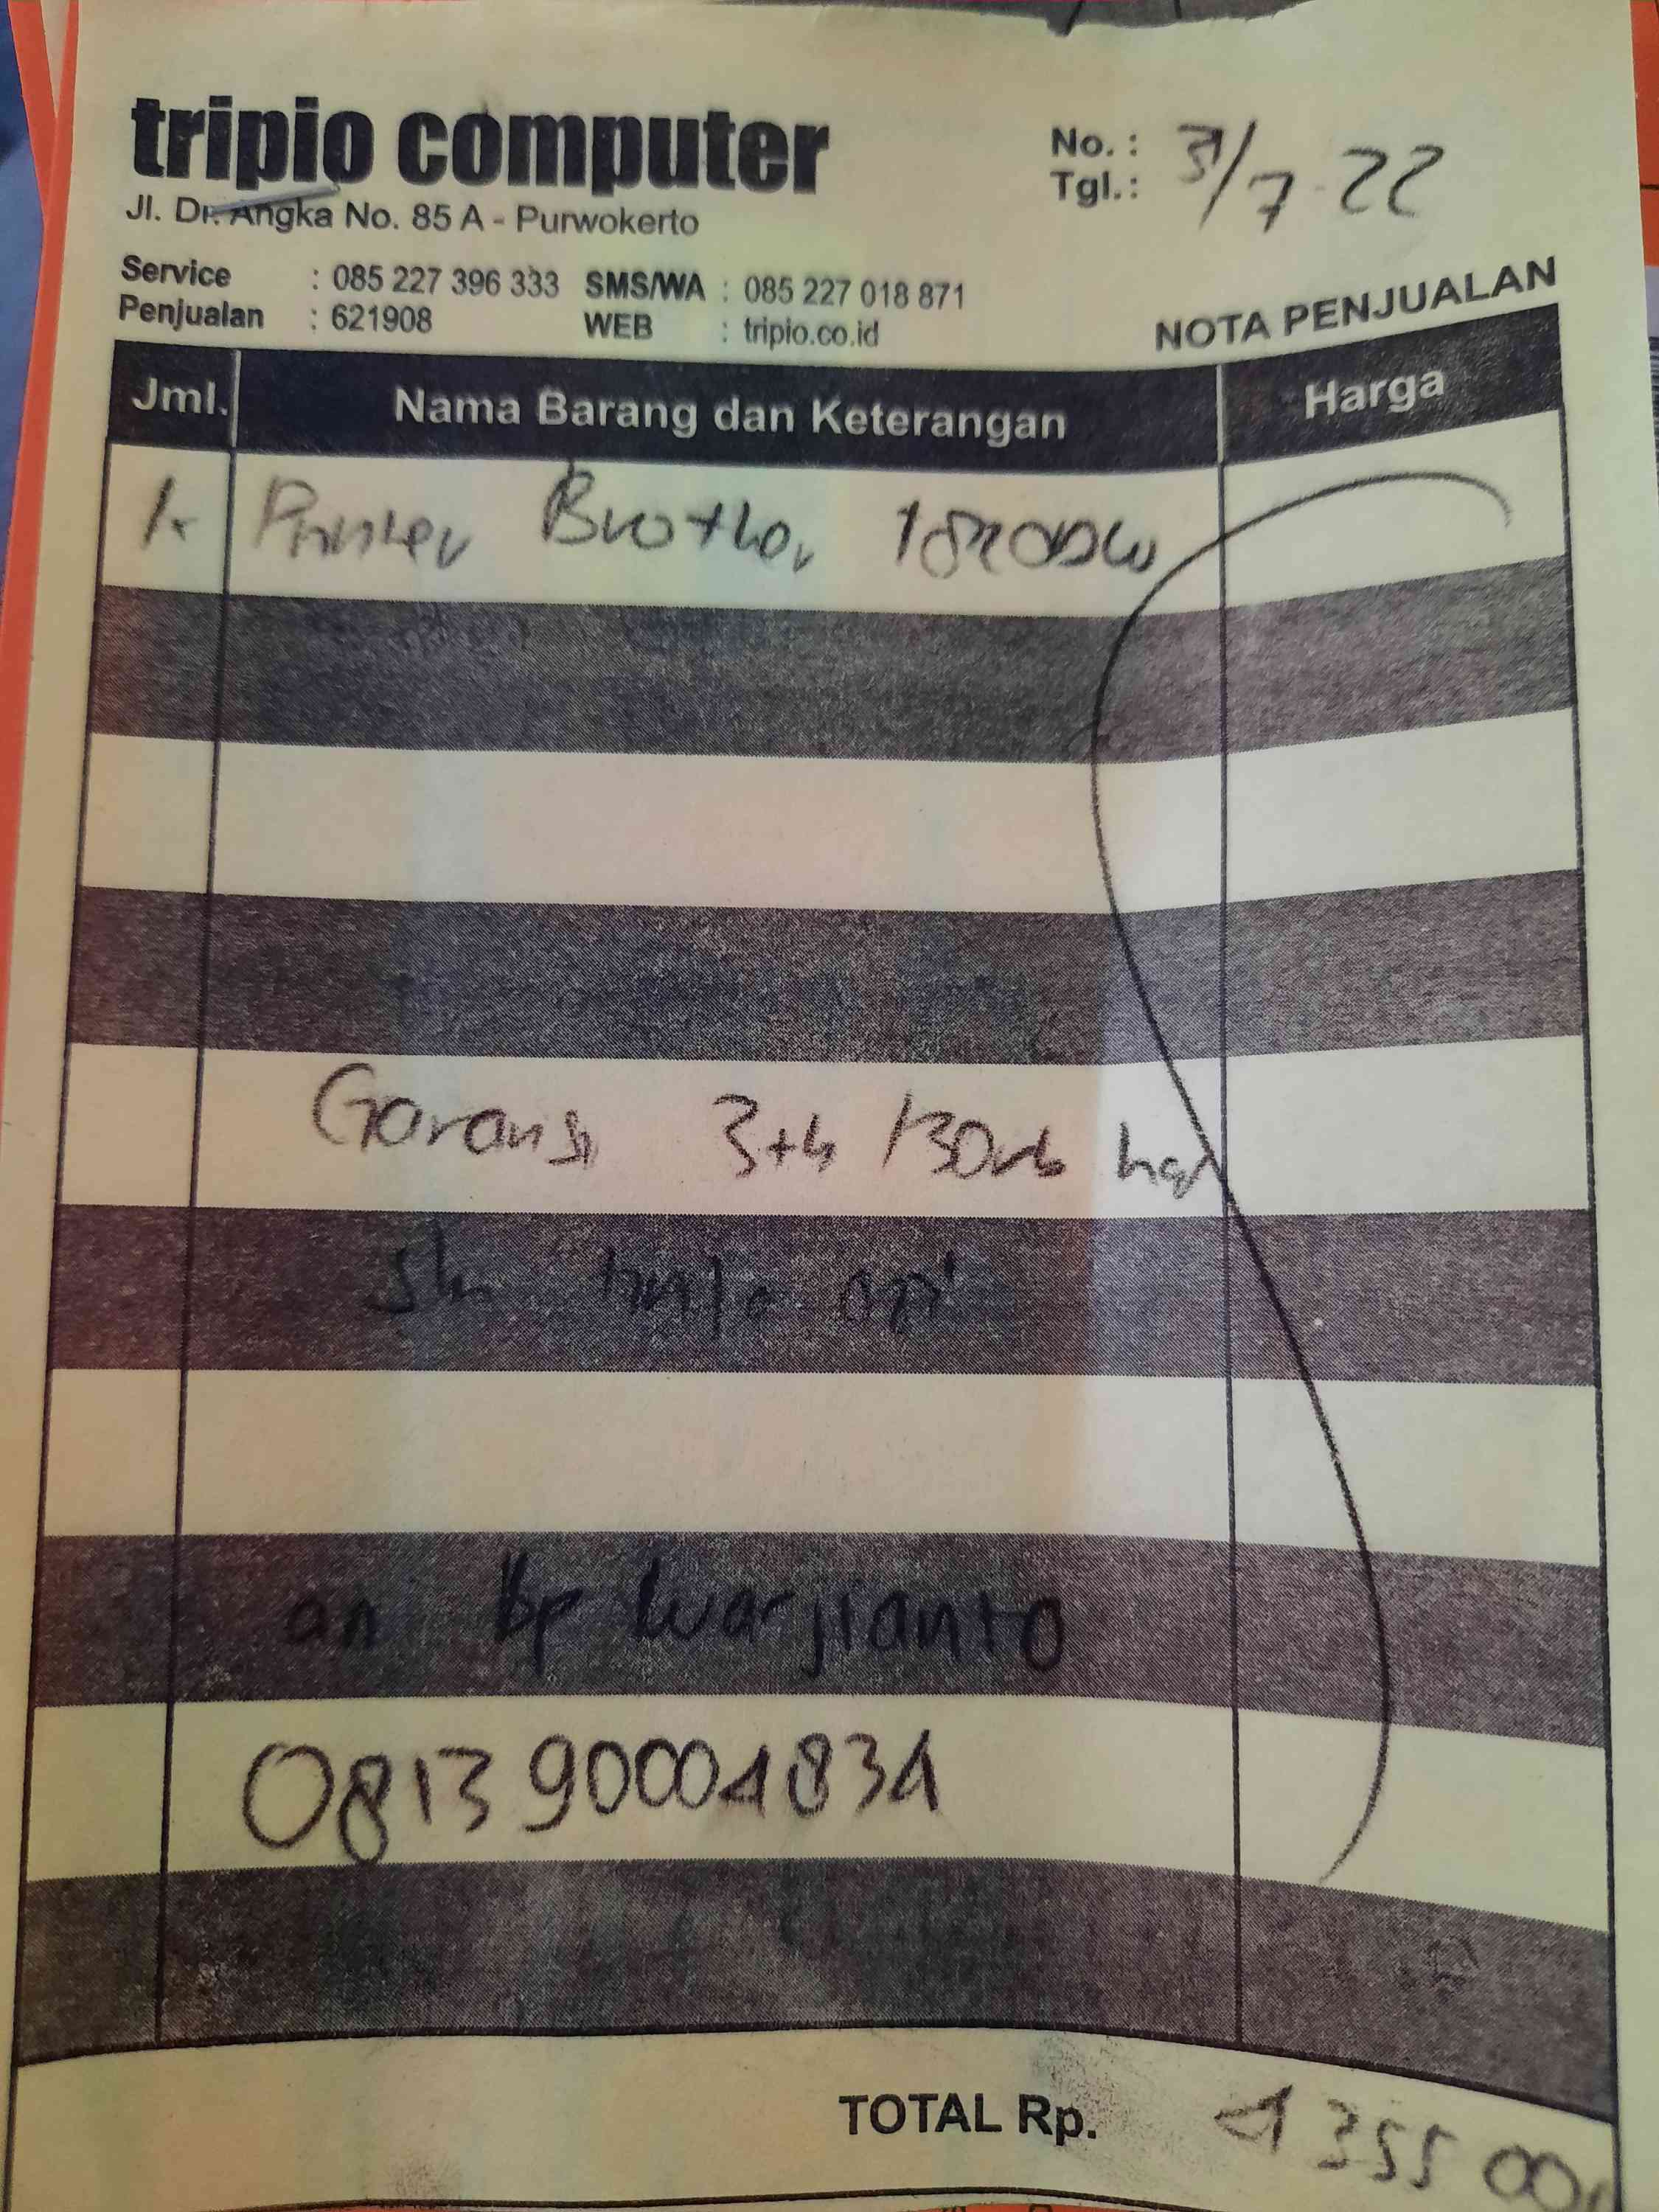 tripio computer
Jl. Dr. Angka No. 85 A - Purwokerto
No. :
Tgl. : 7-22
Service : 085 227 396 333 SMS/WA : 085 227 018 871
Penjualan : 621908 WEB : tripio.co.id
NOTA PENJUALAN
Jml. Nama Barang dan Keterangan Harga
1. Printer Brother
Garansi 3+4
an Bp Warjianto
TOTAL Rp. 4 355 00